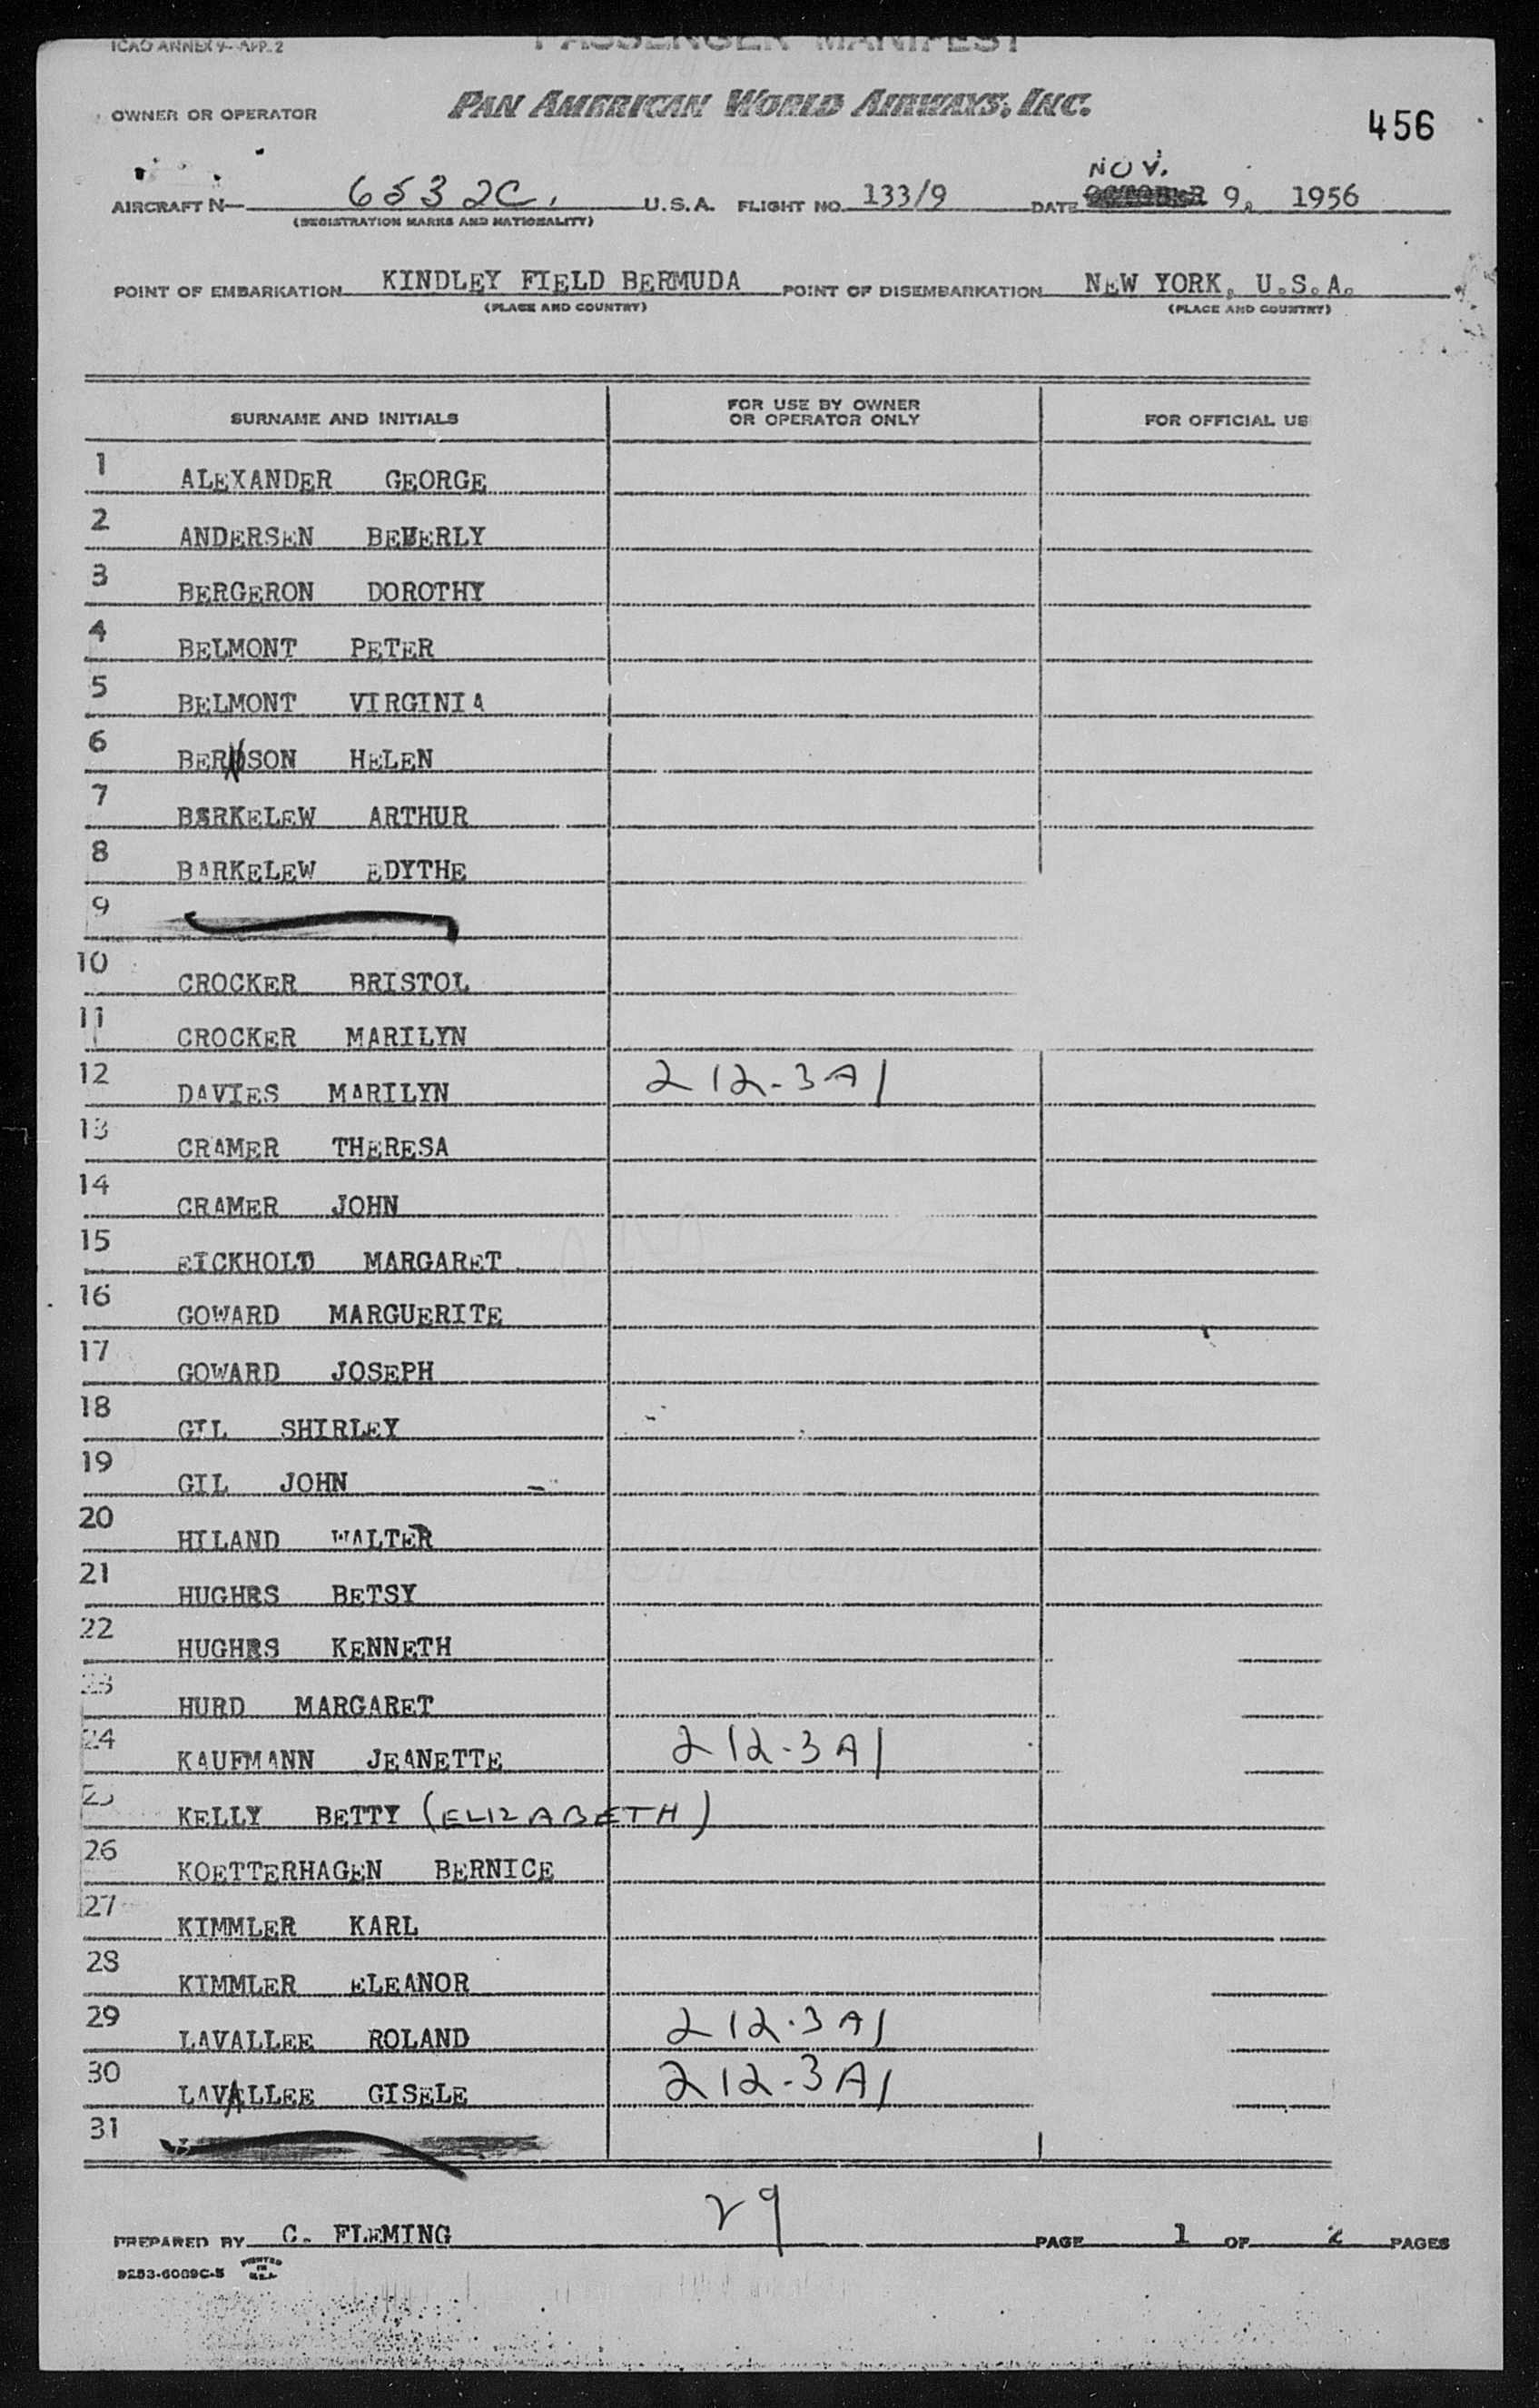 ICAO ANNEX 9- APP. 2
PASSENGER MANIFEST
OWNER OR OPERATOR PAN AMERICAN WORLD AIRWAYS, INC.
456
NOV.
AIRCRAFT N— 6532C. U.S.A. FLIGHT NO. 133/9 DATE OCTOBER 9, 1956
(REGISTRATION MARKS AND NATIONALITY)
POINT OF EMBARKATION KINDLEY FIELD BERMUDA POINT OF DISEMBARKATION NEW YORK, U.S.A.
(PLACE AND COUNTRY) (PLACE AND COUNTRY)
SURNAME AND INITIALS FOR USE BY OWNER OR OPERATOR ONLY FOR OFFICIAL US
1 ALEXANDER GEORGE
2 ANDERSEN BEVERLY
3 BERGERON DOROTHY
4 BELMONT PETER
5 BELMONT VIRGINIA
6 BERNSON HELEN
7 BARKELEW ARTHUR
8 BARKELEW EDYTHE
9
10 CROCKER BRISTOL
11 CROCKER MARILYN
12 DAVIES MARILYN 212-3A1
13 CRAMER THERESA
14 CRAMER JOHN
15 EICKHOLT MARGARET
16 GOWARD MARGUERITE
17 GOWARD JOSEPH
18 GIL SHIRLEY
19 GIL JOHN
20 HILAND WALTER
21 HUGHRS BETSY
22 HUGHRS KENNETH
23 HURD MARGARET
24 KAUFMANN JEANETTE 212-3A1
25 KELLY BETTY (ELIZABETH)
26 KOETTERHAGEN BERNICE
27 KIMMLER KARL
28 KIMMLER ELEANOR
29 LAVALLEE ROLAND 212-3A1
30 LAVALLEE GISELE 212-3A1
31
29
PREPARED BY C. FLEMING PAGE 1 OF 2 PAGES
9253-6009C-5 PRINTED IN U.S.A.